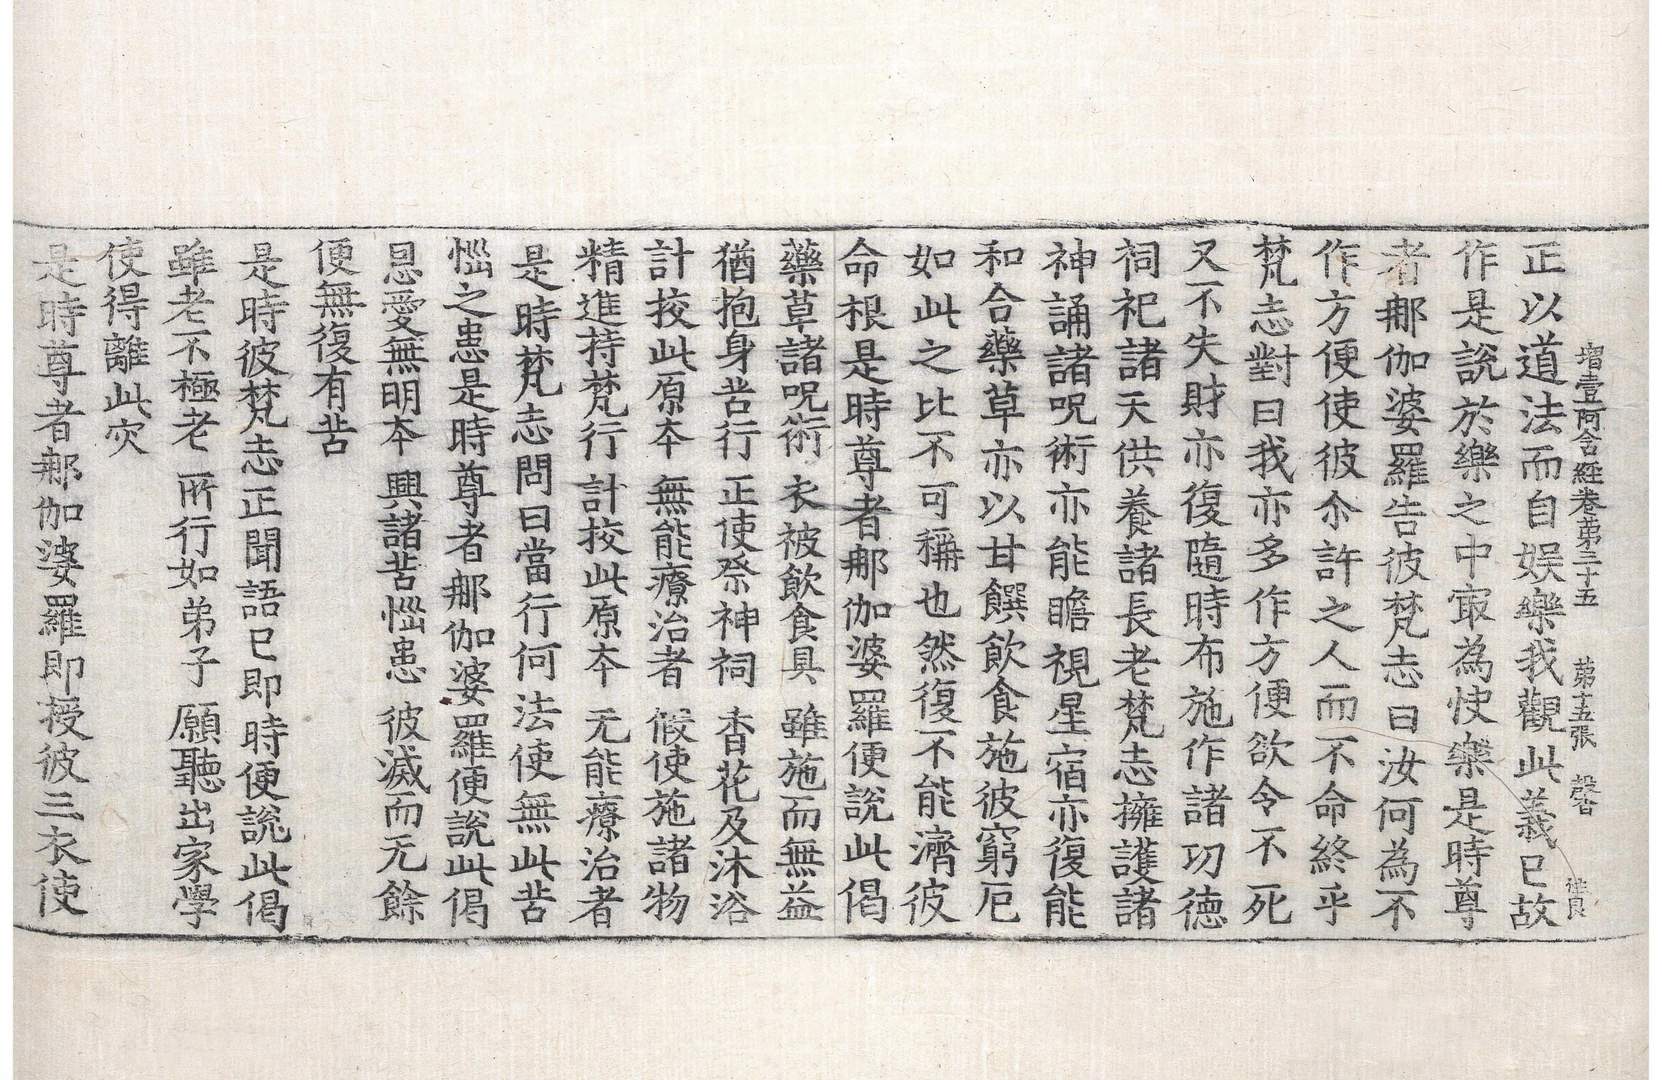 增壹阿含經卷第三十五 第十五張 磬
正以道法而自娛樂我觀此義已故
作是說於樂之中㝡為快樂是時尊
者那伽婆羅告彼梵志曰汝何為不
作方便使彼尒許之人而不命終乎
梵志對曰我亦多作方便欲令不死
又不失財亦復隨時布施作諸功德
祠祀諸天供養諸長老梵志擁護諸
神誦諸呪術亦能瞻視星宿亦復能
和合藥草亦以甘饌飲食施彼窮厄
如此之比不可稱也然復不能濟彼
命根是時尊者那伽婆羅便說此偈
藥草諸呪術 衣被飲食具 雖施而無益
猶抱身苦行 正使祭神祠 香花及沐浴
計挍此原本 無能療治者 假使施諸物
精進持梵行 計挍此原本 无能療治者
是時梵志問曰當行何法使無此苦
惱之患是時尊者那伽婆羅便說此偈
恩愛無明本 興諸苦惱患 彼滅而无餘
便無復有苦
是時彼梵志正聞語已即時便說此偈
雖老不極老 所行如弟子 願聽出家學
使得離此灾
是時尊者那伽婆羅即授彼三衣使